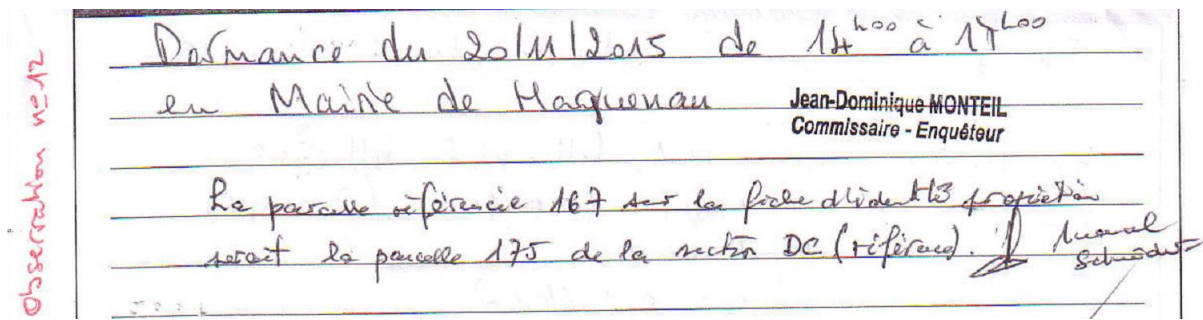 Observation n°12
Permanence du 20/11/2015 de 14h00 à 17h00
en Mairie de Haguenau
Jean-Dominique MONTEIL
Commissaire - Enquêteur
La parcelle référencée 167 sur la fiche d'identité propriétaire
serait la parcelle 175 de la section DC (référence).